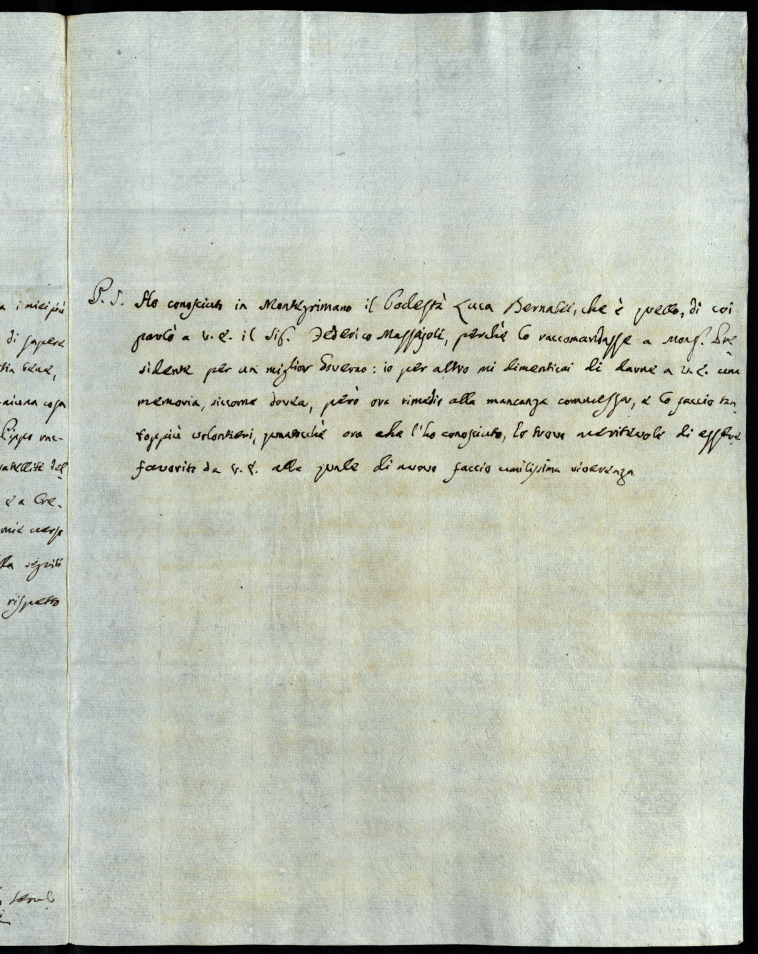 a i miei più
di sapere
tia bene,
niuna cosa
lippo
satellite del
e a Cre-
mie
segniti
rispetto
P. S. Ho conosciuto in Montegrimano il Podestà Luca Bernabei, che è quello, di cui
parlò a V. E. il Sig.r Federico Massajoli, perchè lo raccomandasse a Mons.r Pre
sidente per un miglior Governo: io per altro mi dimenticai di darne a V. E. una
memoria, siccome dovea, però ora rimedio alla mancanza commessa, e lo faccio tan
toppiù volontieri, quantochè ora che l'ho conosciuto, lo trovo meritevole di essere
favorito da V. E. alla quale di nuovo faccio umilissima riverenza